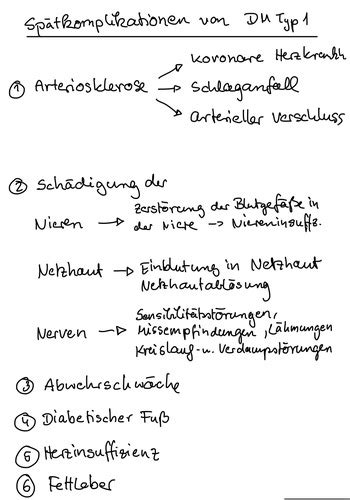 Spätkomplikationen von DM Typ 1
koronare Herzkrankh
① Arteriosklerose → Schlaganfall
arterieller Verschluss
② Schädigung der
Nieren → Zerstörung der Blutgefäße in
der Niere → Niereninsuffz.
Netzhaut → Einblutung in Netzhaut
Netzhautablösung
Nerven → Sensibilitätsstörungen,
Missempfindungen, Lähmungen
Kreislauf- u. Verdauungsstörungen
③ Abwehrschwäche
④ Diabetischer Fuß
⑤ Herzinsuffizienz
⑥ Fettleber